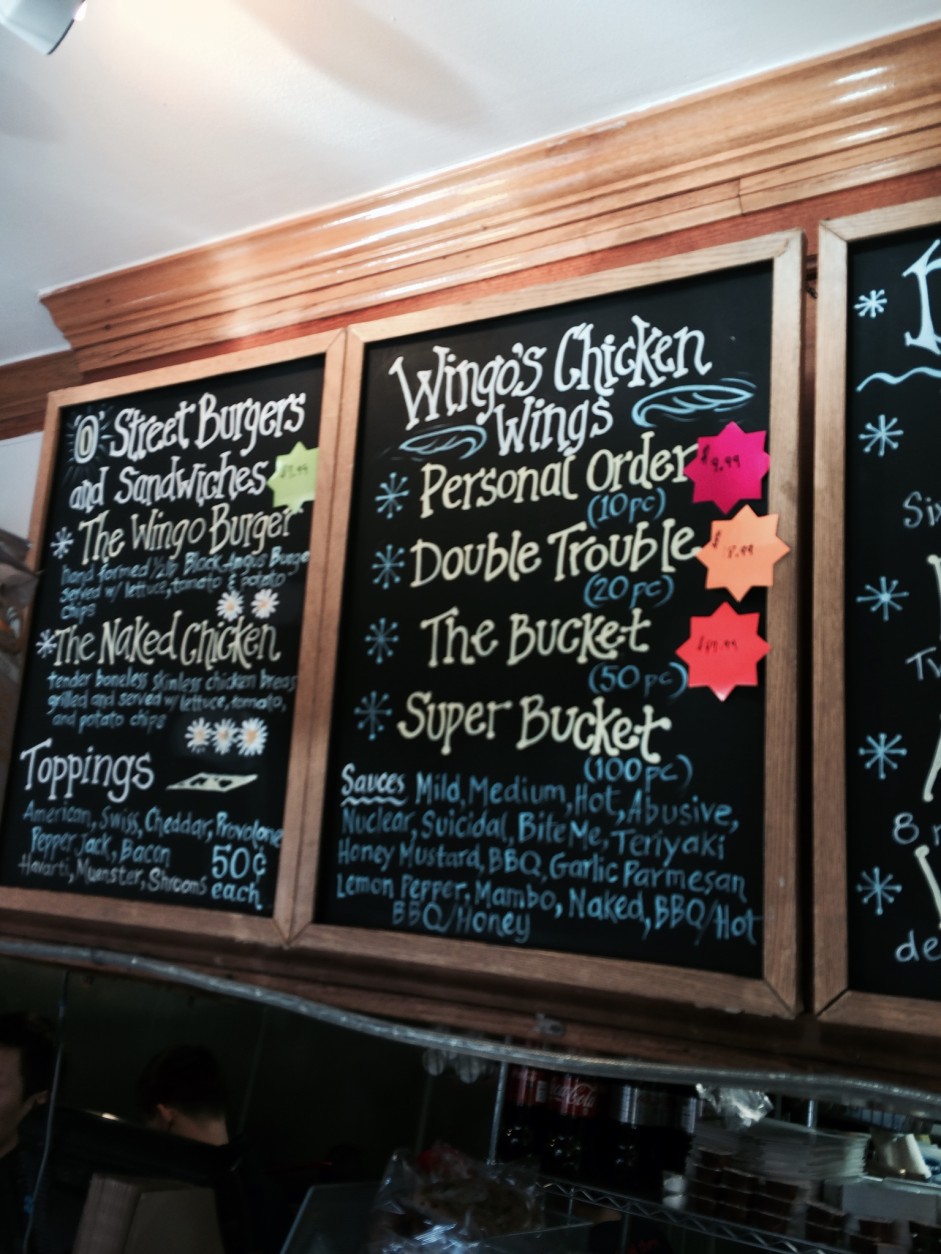 'O' Street Burgers
and Sandwiches
* The Wingo Burger
hand formed 1/2 lb Black Angus Burge
served w/ lettuce, tomato & potato
chips
* The Naked Chicken
tender boneless skinless chicken breas
grilled and served w/ lettuce, tomato,
and potato chips
Toppings
American, Swiss, Cheddar, Provolone
Pepper jack, Bacon
Havarti, Muenster, Shrooms
50¢
each
Wingo's Chicken
Wings
* Personal Order
$9.99
(10 pc)
* Double Trouble
(20 pc)
* The Bucket
(50 pc)
* Super Bucket
(100 pc)
Sauces Mild, Medium, Hot, Abusive,
Nuclear, Suicidal, Bite Me, Teriyaki
Honey Mustard, BBQ, Garlic Parmesan
Lemon Pepper, Mambo, Naked, BBQ/Hot
BBQ/Honey
Coca-Cola